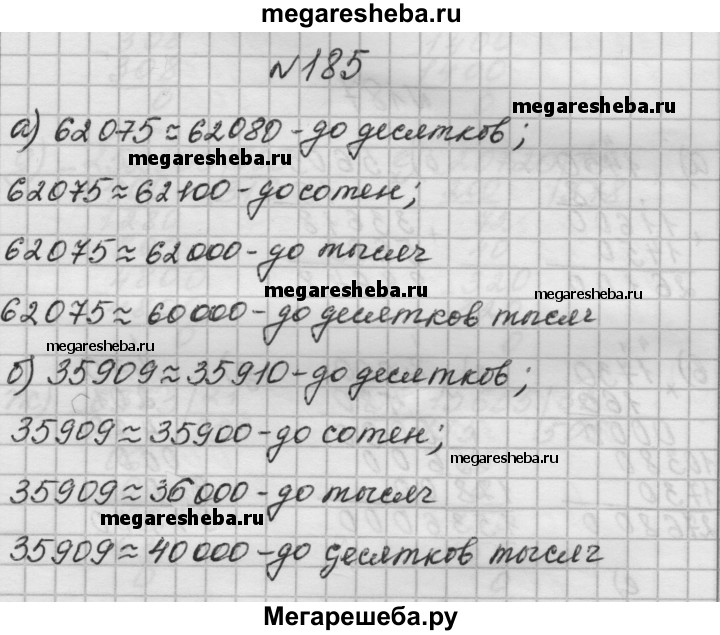 megaresheba.ru
№185
megaresheba.ru
а) 62075≈62080-до десятков;
megaresheba.ru
62075≈62100-до сотен;
62075≈62000-до тысяч
megaresheba.ru
megaresheba.ru
62075≈60000-до десятков тысяч
megaresheba.ru
б) 35909≈35910-до десятков;
35909≈35900-до сотен;
megaresheba.ru
35909≈36000-до тысяч
megaresheba.ru
35909≈40000-до десятков тысяч
Мегарешеба.ру